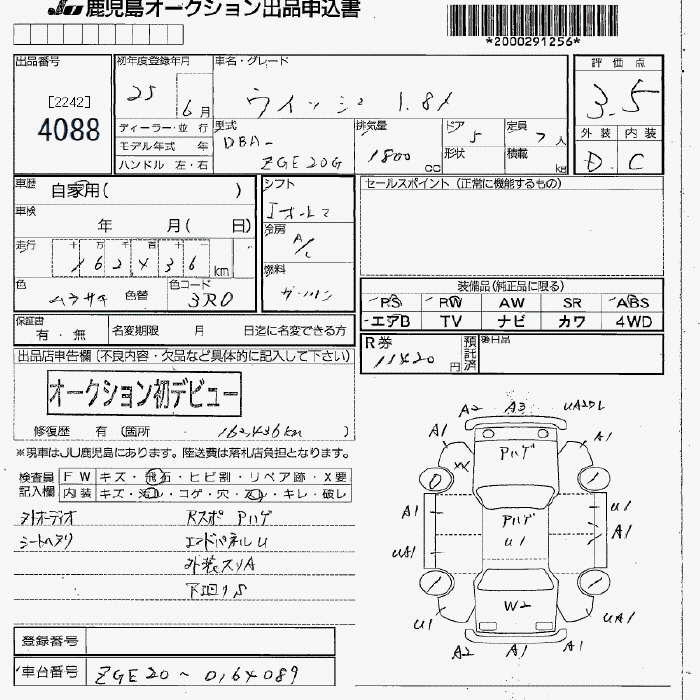 JU 鹿児島オークション出品申込書
*2000291256*
出品番号
[2242]
4088
初年度登録年月
25
6月
車名・グレード
ウィッシュ 1.8X
評価点
3.5
外装 内装
D C
ディーラー・並行
モデル年式 年
ハンドル 左・右
型式
DBA-
ZGE20G
排気量
1800 cc
ドア 5
形状
定員 7人
積載 kg
車歴 自家用( )
車検 年 月( 日)
走行 十 万 千 百 十
162436 km
色 ムラサキ 色替
色コード 3R0
シフト
冷房
A/C
燃料
ガソリン
セールスポイント (正常に機能するもの)
装備品(純正品に限る)
PS PW AW SR ABS
エアB TV ナビ カワ 4WD
保証書
有・無
名変期限 月 日迄に名変できる方
R券
11420円
預託済
後日品
出品店申告欄(不良内容・欠品など具体的に記入して下さい)
オークション初デビュー
修復歴 有 (箇所 162,436km )
※現車はJU鹿児島にあります。陸送費は落札店負担となります。
検査員記入欄
FW キズ・飛石・ヒビ割・リペア跡・X要
内装 キズ・汚レ・コゲ・穴・スレ・キレ・破レ
外オーディオ Rスポ アハゲ
シートヘタリ エンドパネルU
外装スリA
下回りS
A2 A3 UA2DL
A1 アハゲ A1
XX
A1 アハゲ U1
U1 A1
UA1
W2
U1 UA1
A2 A1 A1
登録番号
車台番号 ZGE20~0164089